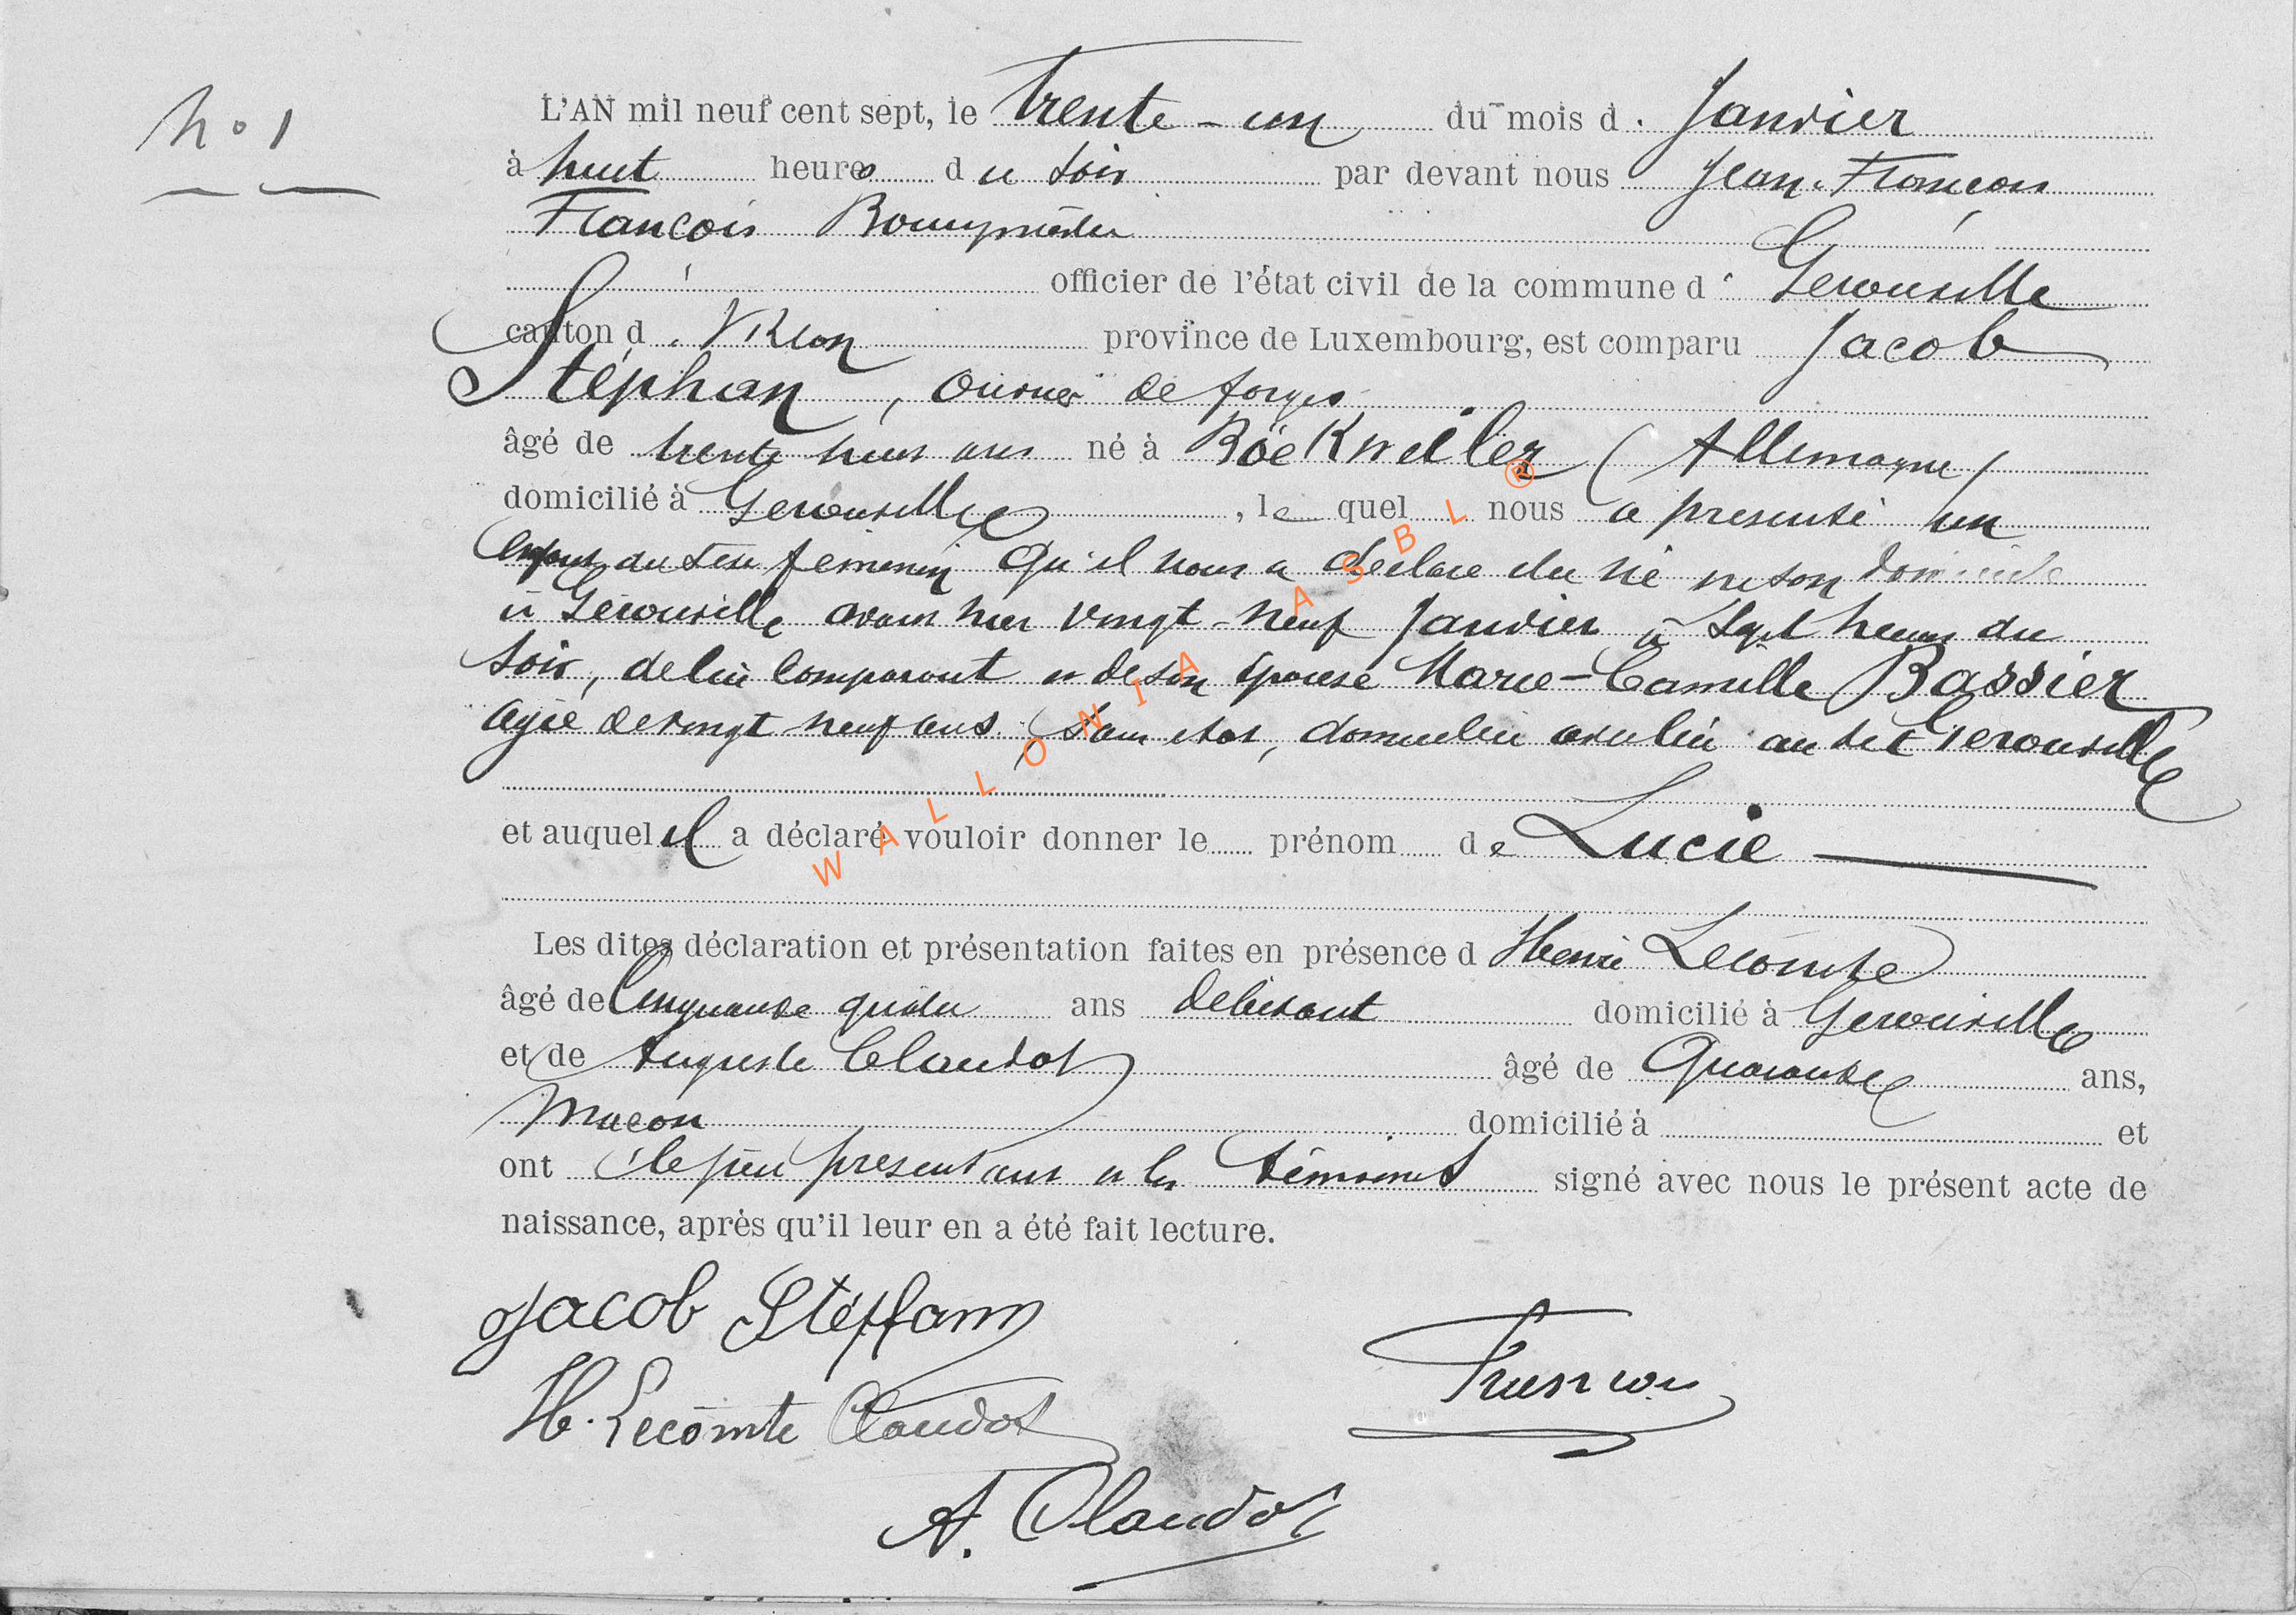 N° 1
L'AN mil neuf cent sept, le trente-un du mois d. Janvier
à huit heures du soir par devant nous Jean-François
François Bourgmestre
officier de l'état civil de la commune d' Gerouville
canton d. Virton province de Luxembourg, est comparu Jacob
Stéphan, ouvrier de forges
âgé de trente huit ans né à Böekweiler (Allemagne)
domicilié à Gerouville, le quel nous a présenté un
enfant du sexe féminin qu'il nous a déclaré être né en son domicile
à Gérouville avant hier vingt-neuf Janvier à sept heures du
soir, de lui comparant et de son épouse Marie-Camille Bassier
agée de vingt neuf ans, sans état, domiciliée avec lui au dit Gerouville
et auquel il a déclaré vouloir donner le prénom de Lucie
Les dites déclaration et présentation faites en présence d Henri Lecomte
âgé de Cinquante quatre ans débitant domicilié à Gerouville
et de Auguste Claudot âgé de Quarante ans,
maçon domicilié à et
ont le père présentant et les témoins signé avec nous le présent acte de
naissance, après qu'il leur en a été fait lecture.
Jacob Stéffann
H. Lecomte Claudot
A. Claudot
WALLONIA ASBL ®